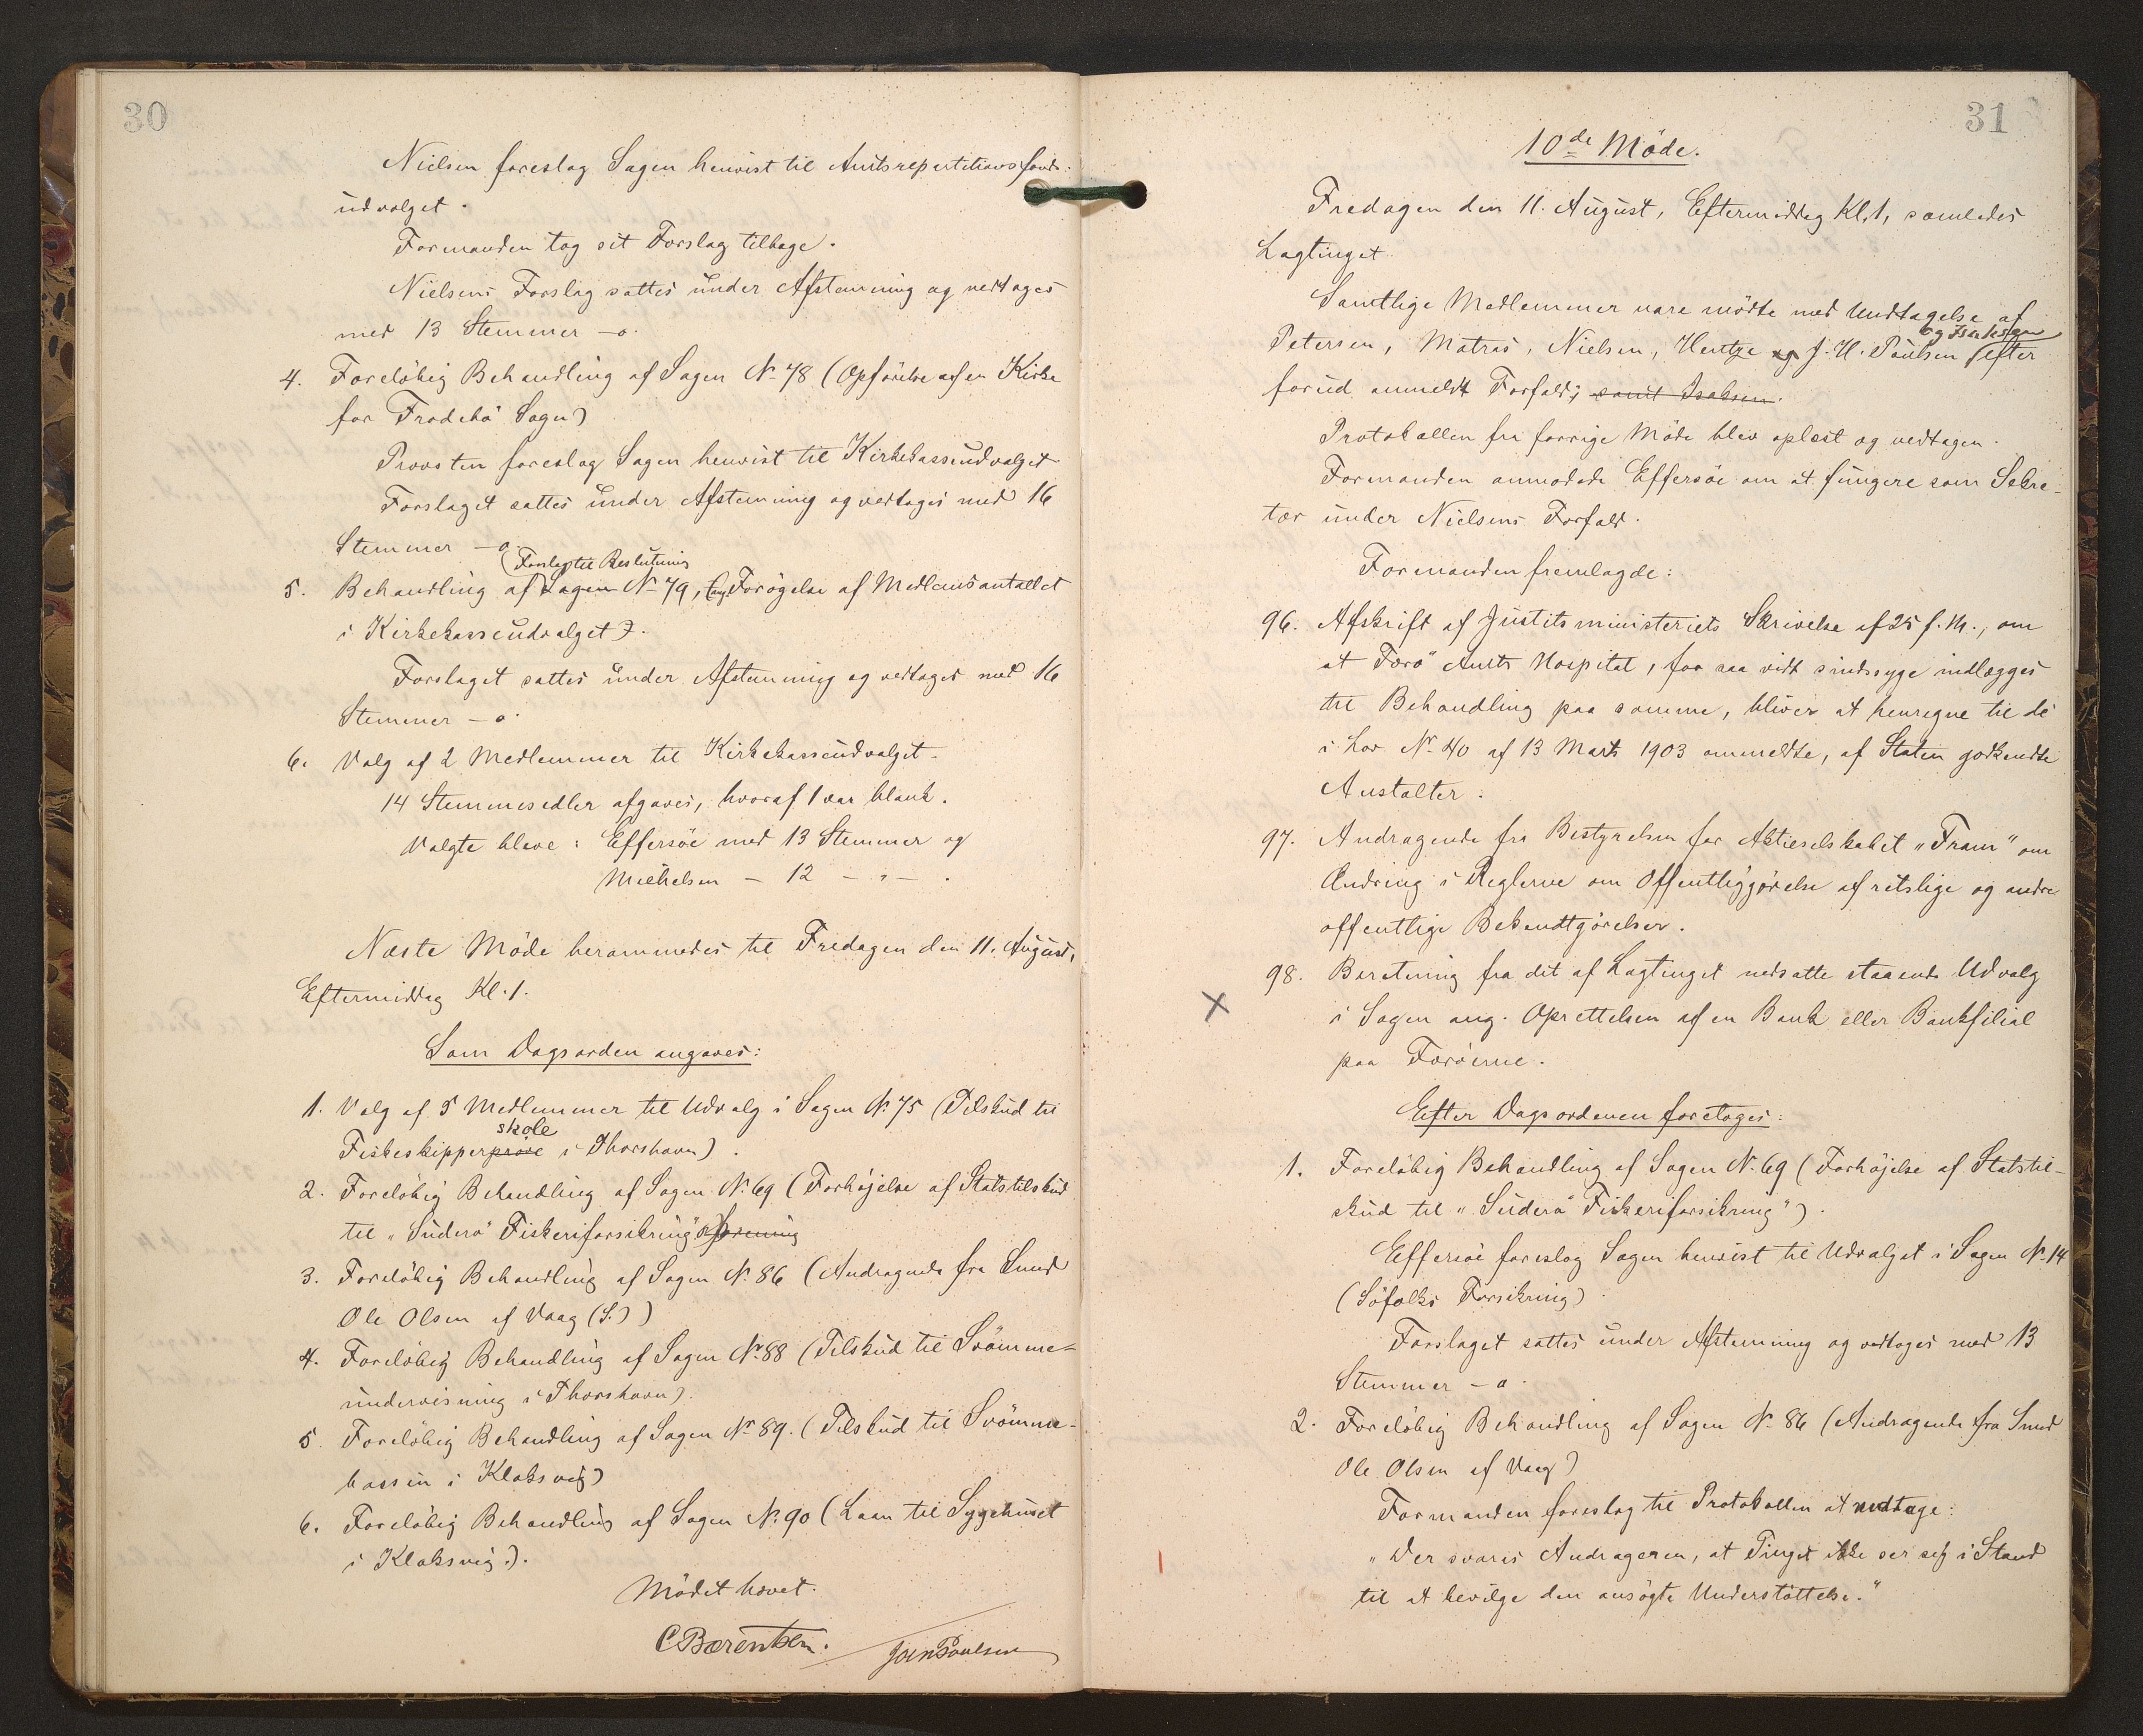 30
Nielsen foreslog Sagen henvist til Amtsrepartitionsfonds-
udvalget.
Formanden tog sit Forslag tilbage.
Nielsens Forslag sattes under Afstemning og vedtoges
med 13 Stemmer – o.
4. Foreløbig Behandling af Sagen No 78 (Opførelse af en Kirke
for Frodebø Sogn)
Provsten foreslog Sagen henvist til Kirkekasseudvalget
Forslaget sattes under Afstemning og vedtoges med 16
Stemmer – o.
(Forslag til Beslutning
5. Behandling af Sagen No 79, (ang. Forøgelse af Medlemsantallet
i Kirkekasseudvalget).
Forslaget sattes under Afstemning og vedtoges med 16
Stemmer – o.
6. Valg af 2 Medlemmer til Kirkekasseudvalget.
14 Stemmesedler afgaves, hvoraf 1 var blank.
Valgte bleve: Effersøe med 13 Stemmer og
Michelsen – 12 – " – .
Næste Møde berammedes til Fredagen den 11. August,
Eftermiddag Kl. 1.
Som Dagsorden angaves:
1. Valg af 5 Medlemmer til Udvalg i Sagen No 75 (Tilskud til
skole
Fiskeskipperprøve i Thorshavn).
2. Foreløbig Behandling af Sagen No 69 (Forhøjelse af Statstilskud
til "Suderø Fiskeriforsikring") sforening
3. Foreløbig Behandling af Sagen No 86 (Andragende fra Smed
Ole Olsen af Vaag (S.))
4. Foreløbig Behandling af Sagen No 88 (Tilskud til Svømme-
undervisning i Thorshavn).
5. Foreløbig Behandling af Sagen No 89. (Tilskud til Svømme-
bassin i Klaksvig)
6. Foreløbig Behandling af Sagen No 90 (Laan til Sygehuset
i Klaksvig.).
Mødet hævet.
C Bærentsen. Joen Poulsen
31
10de Møde.
Fredagen den 11. August, Eftermiddag Kl. 1, samledes
Lagtinget
Samtlige Medlemmer vare mødte med Undtagelse af
og Isaksen
Petersen, Matras, Nielsen, Hentze og J. H. Poulsen efter
forud anmeldt Forfald; samt Isaksen.
Protokollen fra forrige Møde blev oplæst og vedtagen.
Formanden anmodede Effersøe om at fungere som Sekre-
tær under Nielsens Forfald.
Formanden fremlagde:
96. Afskrift af Justitsministeriets Skrivelse af 25 f. M., om
at Færø Amts Hospital, for saa vidt sindssyge indlægges
til Behandling paa samme, bliver at henregne til de
i Lov No 40 af 13 Marts 1903 ommeldte, af Staten godkendte
Anstalter.
97. Andragende fra Bestyrelsen for Aktieselskabet "Fram" om
Ændring i Reglerne om Offentliggørelse af retslige og andre
offentlige Bekendtgørelser.
98. Beretning fra det af Lagtinget nedsatte staaende Udvalg
X i Sagen ang. Oprettelsen af en Bank eller Bankfilial
paa Færøerne.
Efter Dagsordenen foretoges:
1. Foreløbig Behandling af Sagen No 69 (Forhøjelse af Statstil-
skud til "Suderø Fiskeriforsikring").
Effersøe foreslog Sagen henvist til Udvalget i Sagen No 14
(Søfolks Forsikring)
Forslaget sattes under Afstemning og vedtoges med 13
Stemmer – o.
2. Foreløbig Behandling af Sagen No 86 (Andragende fra Smed
Ole Olsen af Vaag)
Formanden foreslog til Protokollen at vedtage:
"Der svares Andrageren, at Tinget ikke ser sig i Stand
til at bevilge den ansøgte Understøttelse."